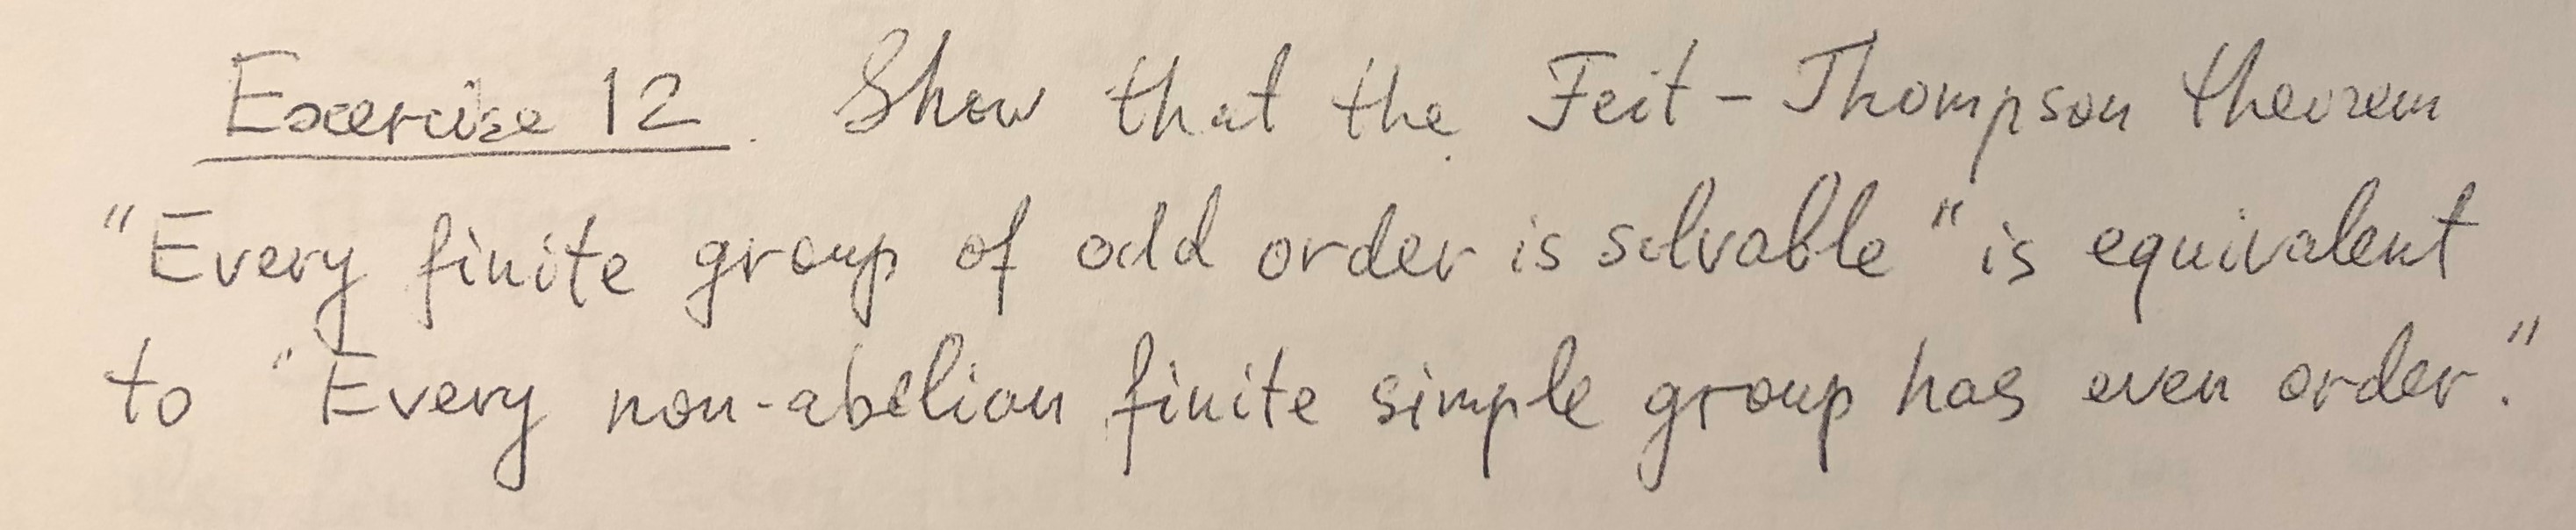 Exercise 12. Show that the Feit-Thompson theorem
"Every finite group of odd order is solvable" is equivalent
to "Every non-abelian finite simple group has even order."